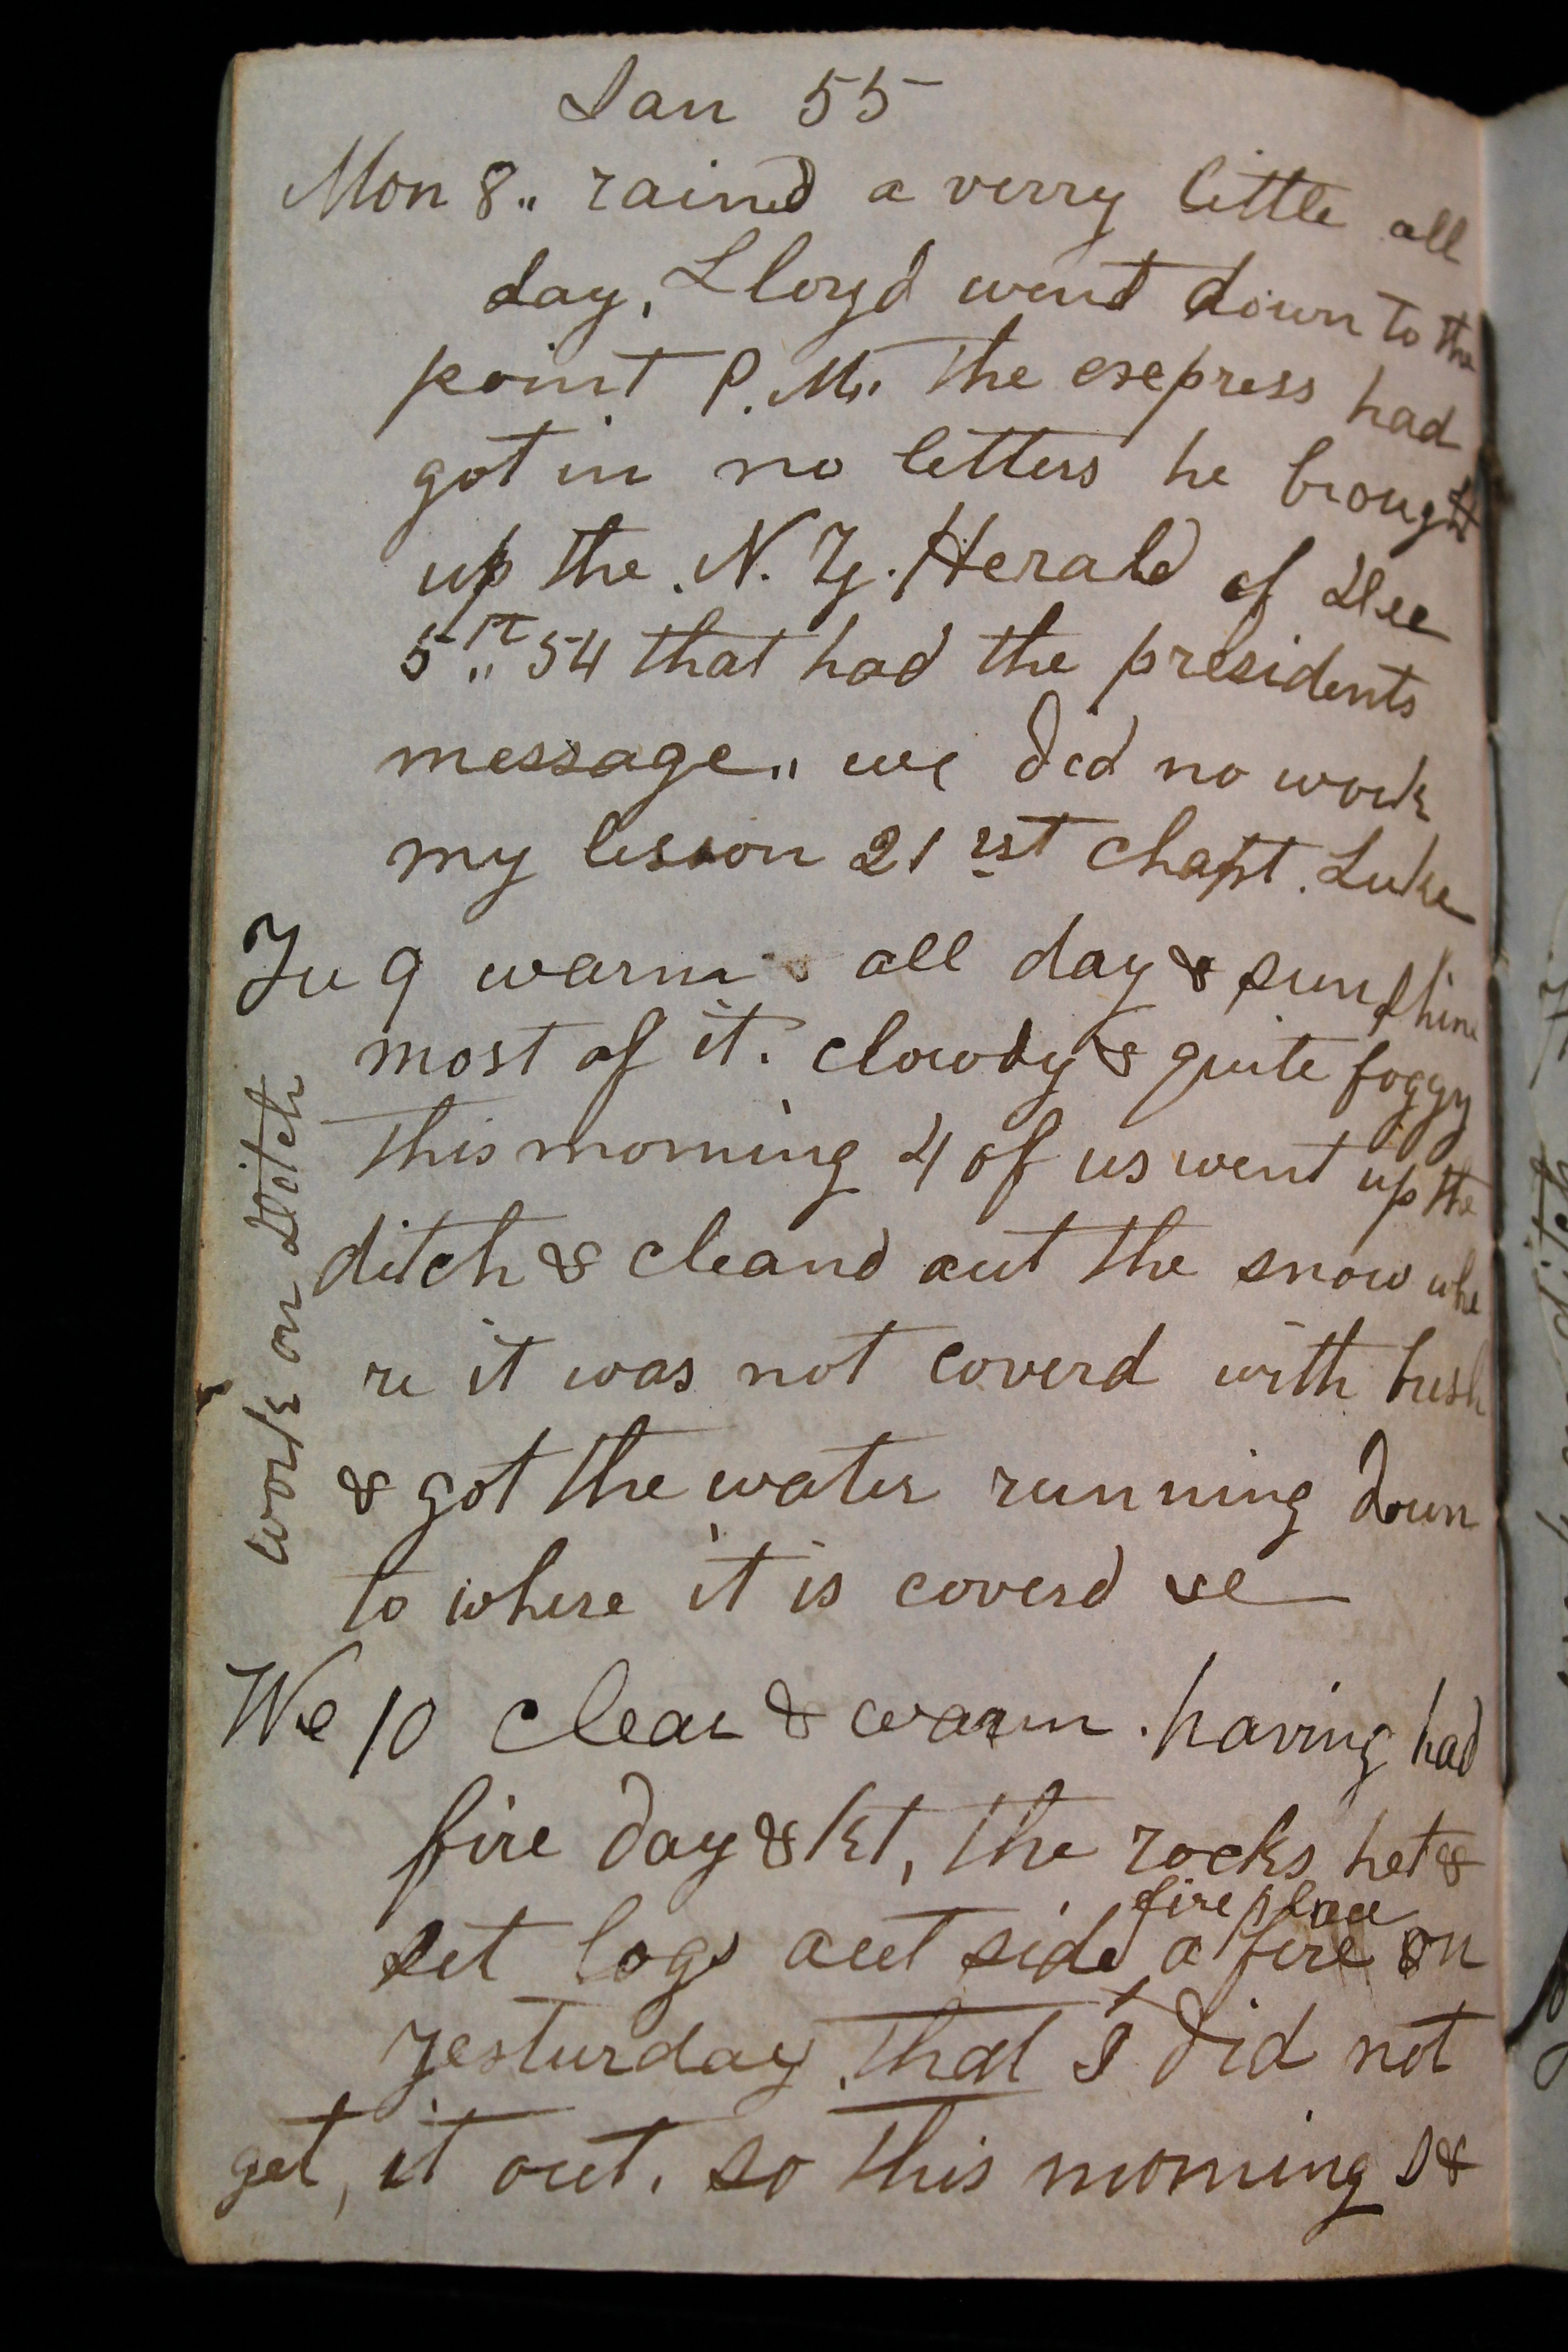 Jan 55
Mon 8„ rained a verry little all
day, Lloyd went down to the
point P.M„ the exepress had
got in no letters he brought
up the N.Y. Herald of Dec
5„ 54 that had the presidents
message„ we did no work
my lesson 21rst chapt. Luke
Tu 9 warm all day & sunshine
most of it. clowdy & quite foggy
this morning 4 of us went up the
ditch & cleand out the snow whe
re it was not coverd with bush
& got the water running down
to where it is coverd
work on Ditch
We 10 Clear & warm. having had
fire day & the rocks het &
set logs out side a fire on
fire place
yesturday, that I did not
get, it out. so this morning